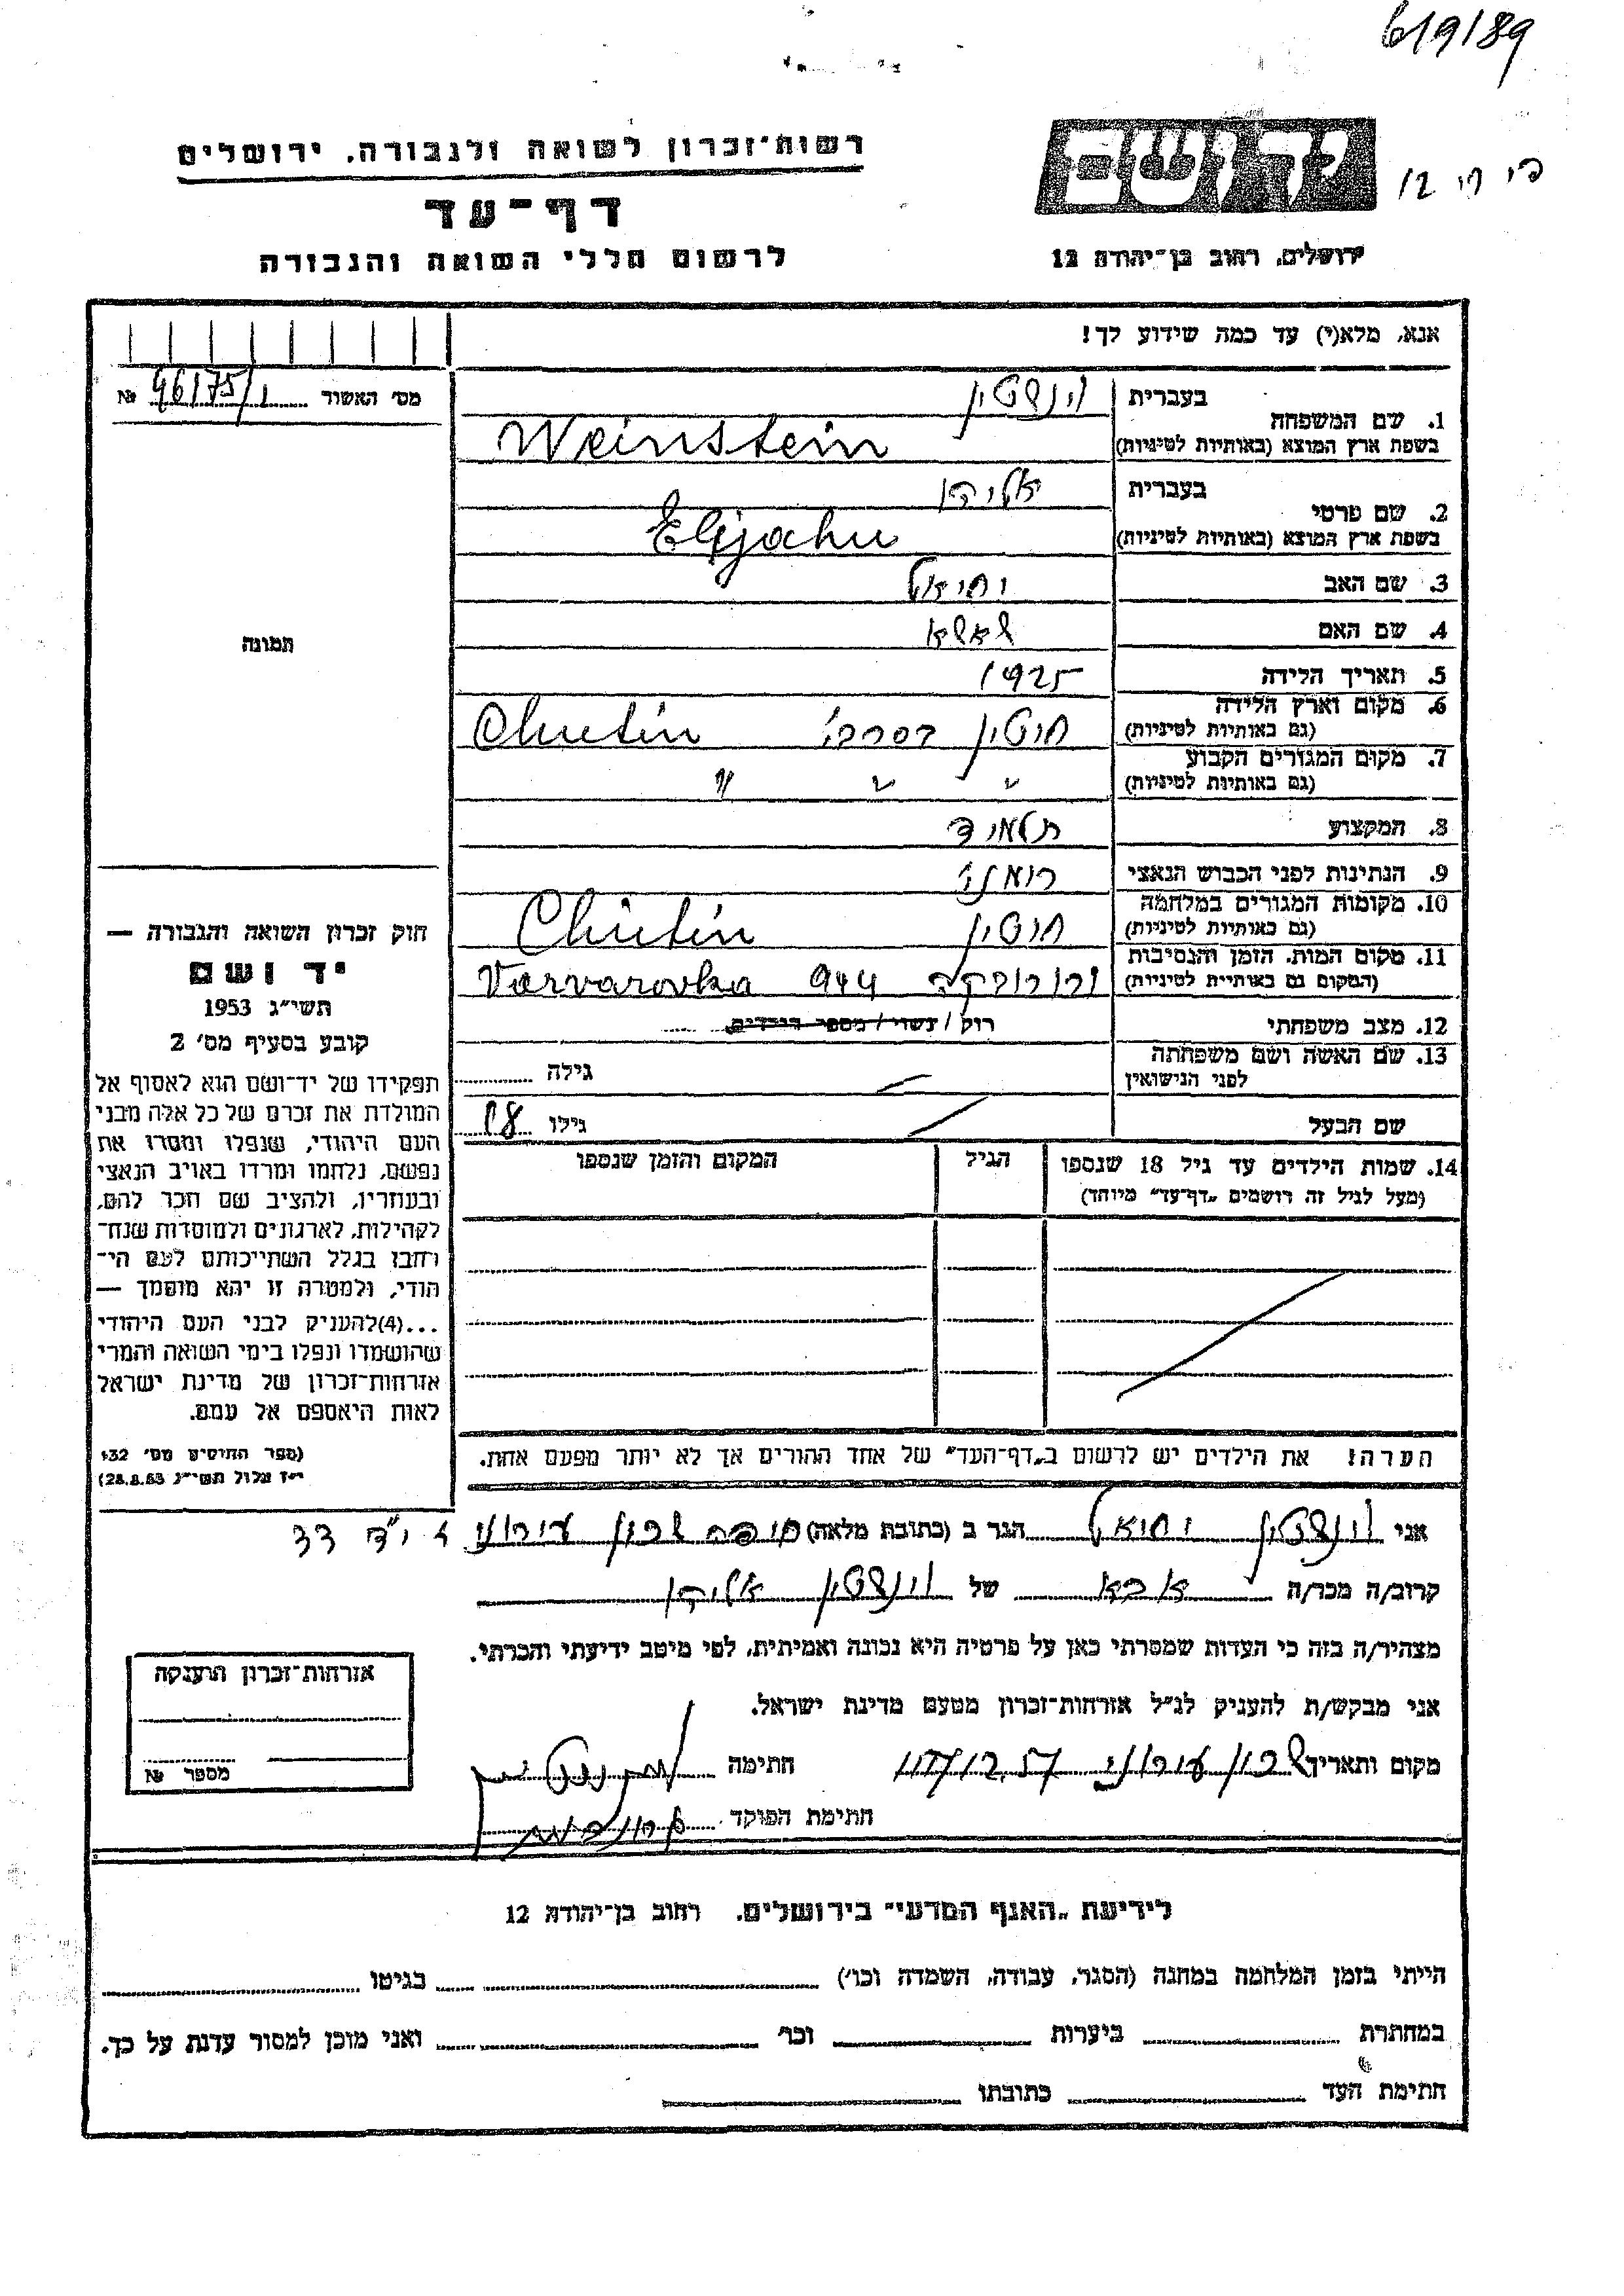 6/9/89
רשות־זכרון לשואה ולגבורה, ירושלים
דף־עד
לרשום חללי השואה והגבורה
יד ושם
ירושלים, רחוב בן־יהודה 12
אנא, מלא(י) עד כמה שידוע לך!
מס׳ האשור № 96175/1
1. שם המשפחה
בעברית וינשטין
בשפת ארץ המוצא (באותיות לטיניות) Weinstein
2. שם פרטי
בעברית אליהו
בשפת ארץ המוצא (באותיות לטיניות) Elijahu
3. שם האב יחיאל
4. שם האם שאשא
5. תאריך הלידה 1925
6. מקום וארץ הלידה (גם באותיות לטיניות) חוטין בסרבי׳ Chutin
7. מקום המגורים הקבוע (גם באותיות לטיניות) " " "
8. המקצוע תלמיד
9. הנתינות לפני הכבוש הנאצי רומני׳
10. מקומות המגורים במלחמה (גם באותיות לטיניות) חוטין Chutin
11. מקום המות, הזמן והנסיבות (המקום גם באותיות לטיניות) ורורובקה 944 Varvarovka
12. מצב משפחתי רווק / נשוי / מספר הילדים
13. שם האשה ושם משפחתה לפני הנישואין גילה
שם הבעל גילו 18
14. שמות הילדים עד גיל 18 שנספו (מעל לגיל זה רושמים „דף־עד״ מיוחד) הגיל המקום והזמן שנספו
הערה! את הילדים יש לרשום ב„דף־העד״ של אחד ההורים אך לא יותר מפעם אחת.
תמונה
חוק זכרון השואה והגבורה —
יד ושם
תשי״ג 1953
קובע בסעיף מס׳ 2
תפקידו של יד־ושם הוא לאסוף אל
המולדת את זכרם של כל אלה מבני
העם היהודי, שנפלו ומסרו את
נפשם, נלחמו ומרדו באויב הנאצי
ובעוזריו, ולהציב שם וזכר להם,
לקהילות, לארגונים ולמוסדות שנח־
רבו בגלל השתייכותם לעם הי־
הודי, ולמטרה זו יהא מוסמך —
...(4)להעניק לבני העם היהודי
שהושמדו ונפלו בימי השואה והמרי
אזרחות־זכרון של מדינת ישראל
לאות היאספם אל עמם.
(ספר החוקים מס׳ 132
י״ז אלול תשי״ג 28.8.53)
אני וינשטין יחיאל הגר ב (כתובת מלאה) חיפה שכון עירוני 33
קרוב/ה מכר/ה אבא של וינשטין אליהו
מצהיר/ה בזה כי העדות שמסרתי כאן על פרטיה היא נכונה ואמיתית, לפי מיטב ידיעתי והכרתי.
אני מבקש/ת להעניק לנ״ל אזרחות־זכרון מטעם מדינת ישראל.
מקום ותאריך שכון עירוני 17/12.57 חתימה
חתימת הפוקד
אזרחות־זכרון הוענקה
מספר №
לידיעת „האגף המדעי״ בירושלים, רחוב בן־יהודה 12
הייתי בזמן המלחמה במחנה (הסגר, עבודה, השמדה וכו׳) בגיטו
במחתרת ביערות וכו׳ ואני מוכן למסור עדות על כך.
חתימת העד כתובתו